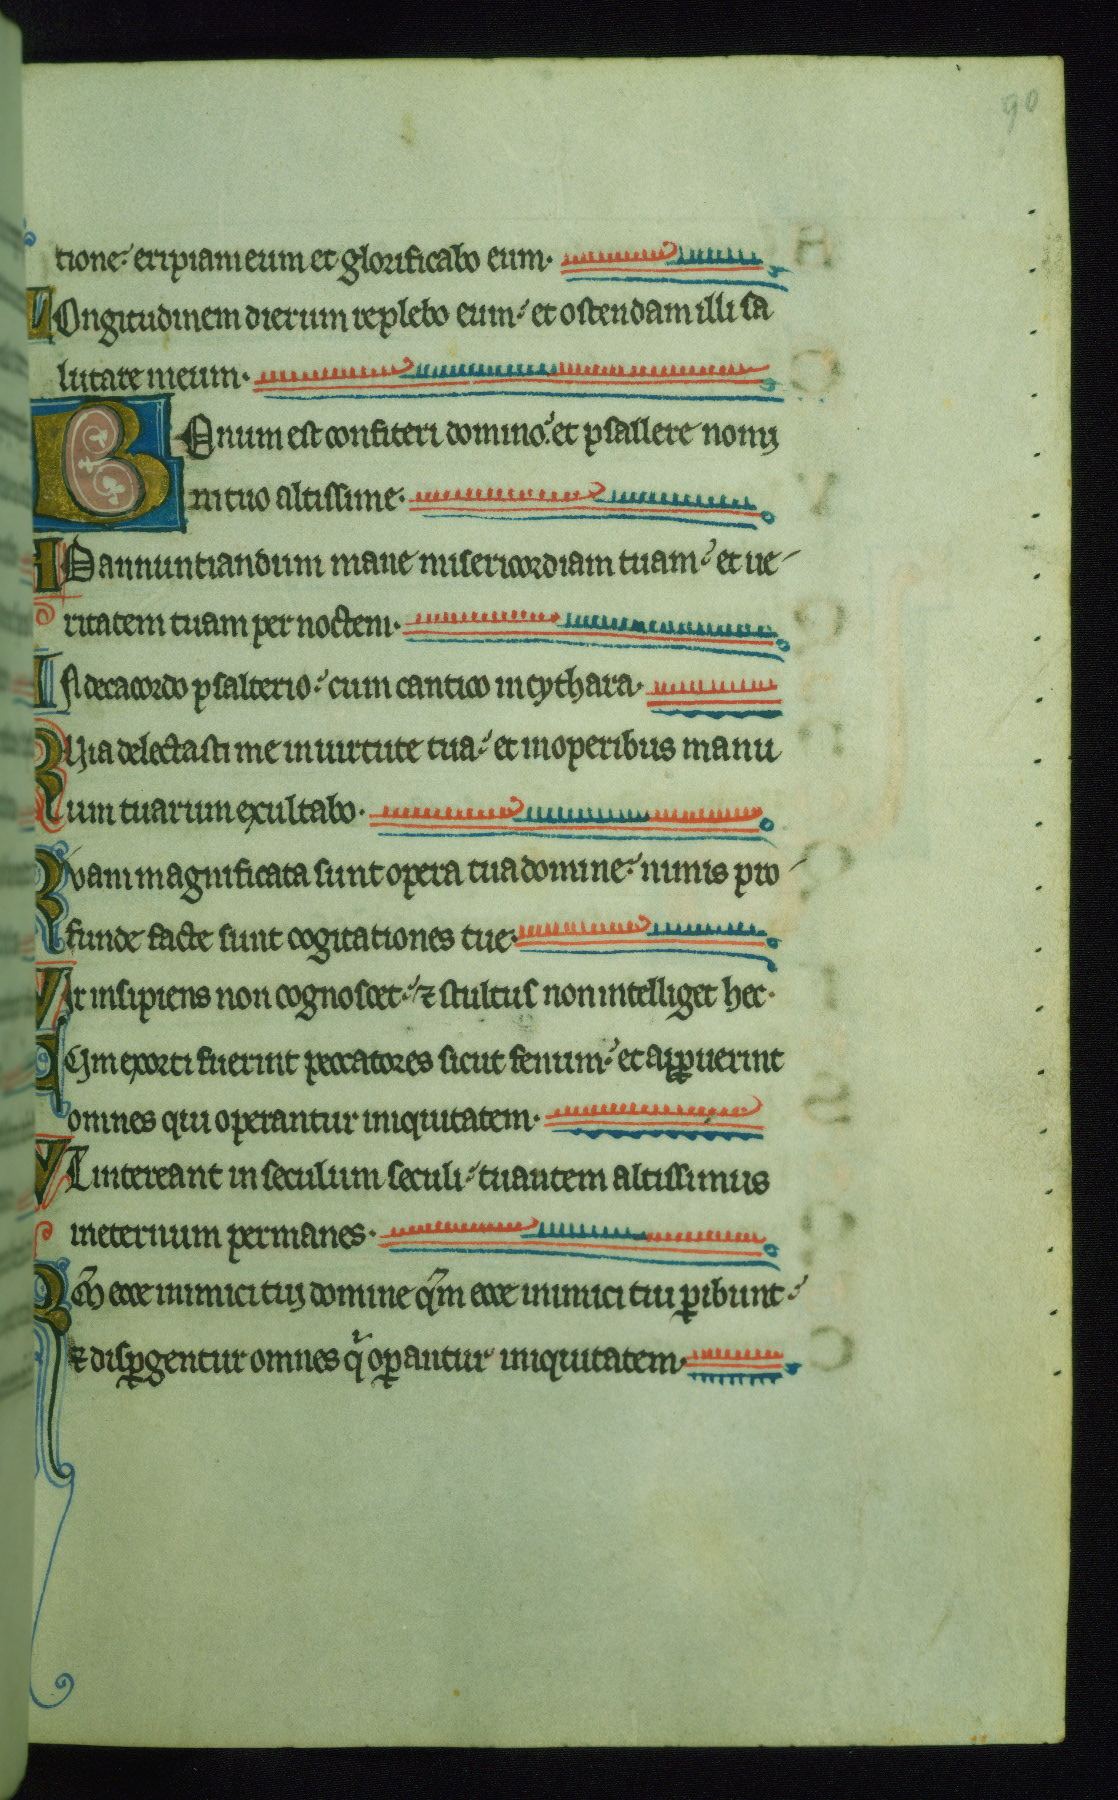 90
tione. eripiam eum et glorificabo eum.
Longitudinem dierum replebo eum. et ostendam illi sa
lutare meum.
Bonum est confiteri domino. et psallere nomi
ni tuo altissime.
Ad annuntiandum mane misericordiam tuam. et ue
ritatem tuam per noctem.
In decacordo psalterio. cum cantico in cythara.
Quia delectasti me in uirtute tua. et in operibus manu
um tuarum exultabo.
Quam magnificata sunt opera tua domine. nimis pro
funde facte sunt cogitationes tue.
Vir insipiens non cognoscet. ⁊ stultus non intelliget hec.
Cum exorti fuerint peccatores sicut fenum. et apꝑuerint
omnes qui operantur iniquitatem.
Vt intereant in seculum seculi. tu autem altissimus
in eternum permanes.
Qm̄ ecce inimici tui domine qm̄ ecce inimici tui ꝑibunt.
⁊ disꝑgentur omnes qⁱ oꝑantur iniquitatem.